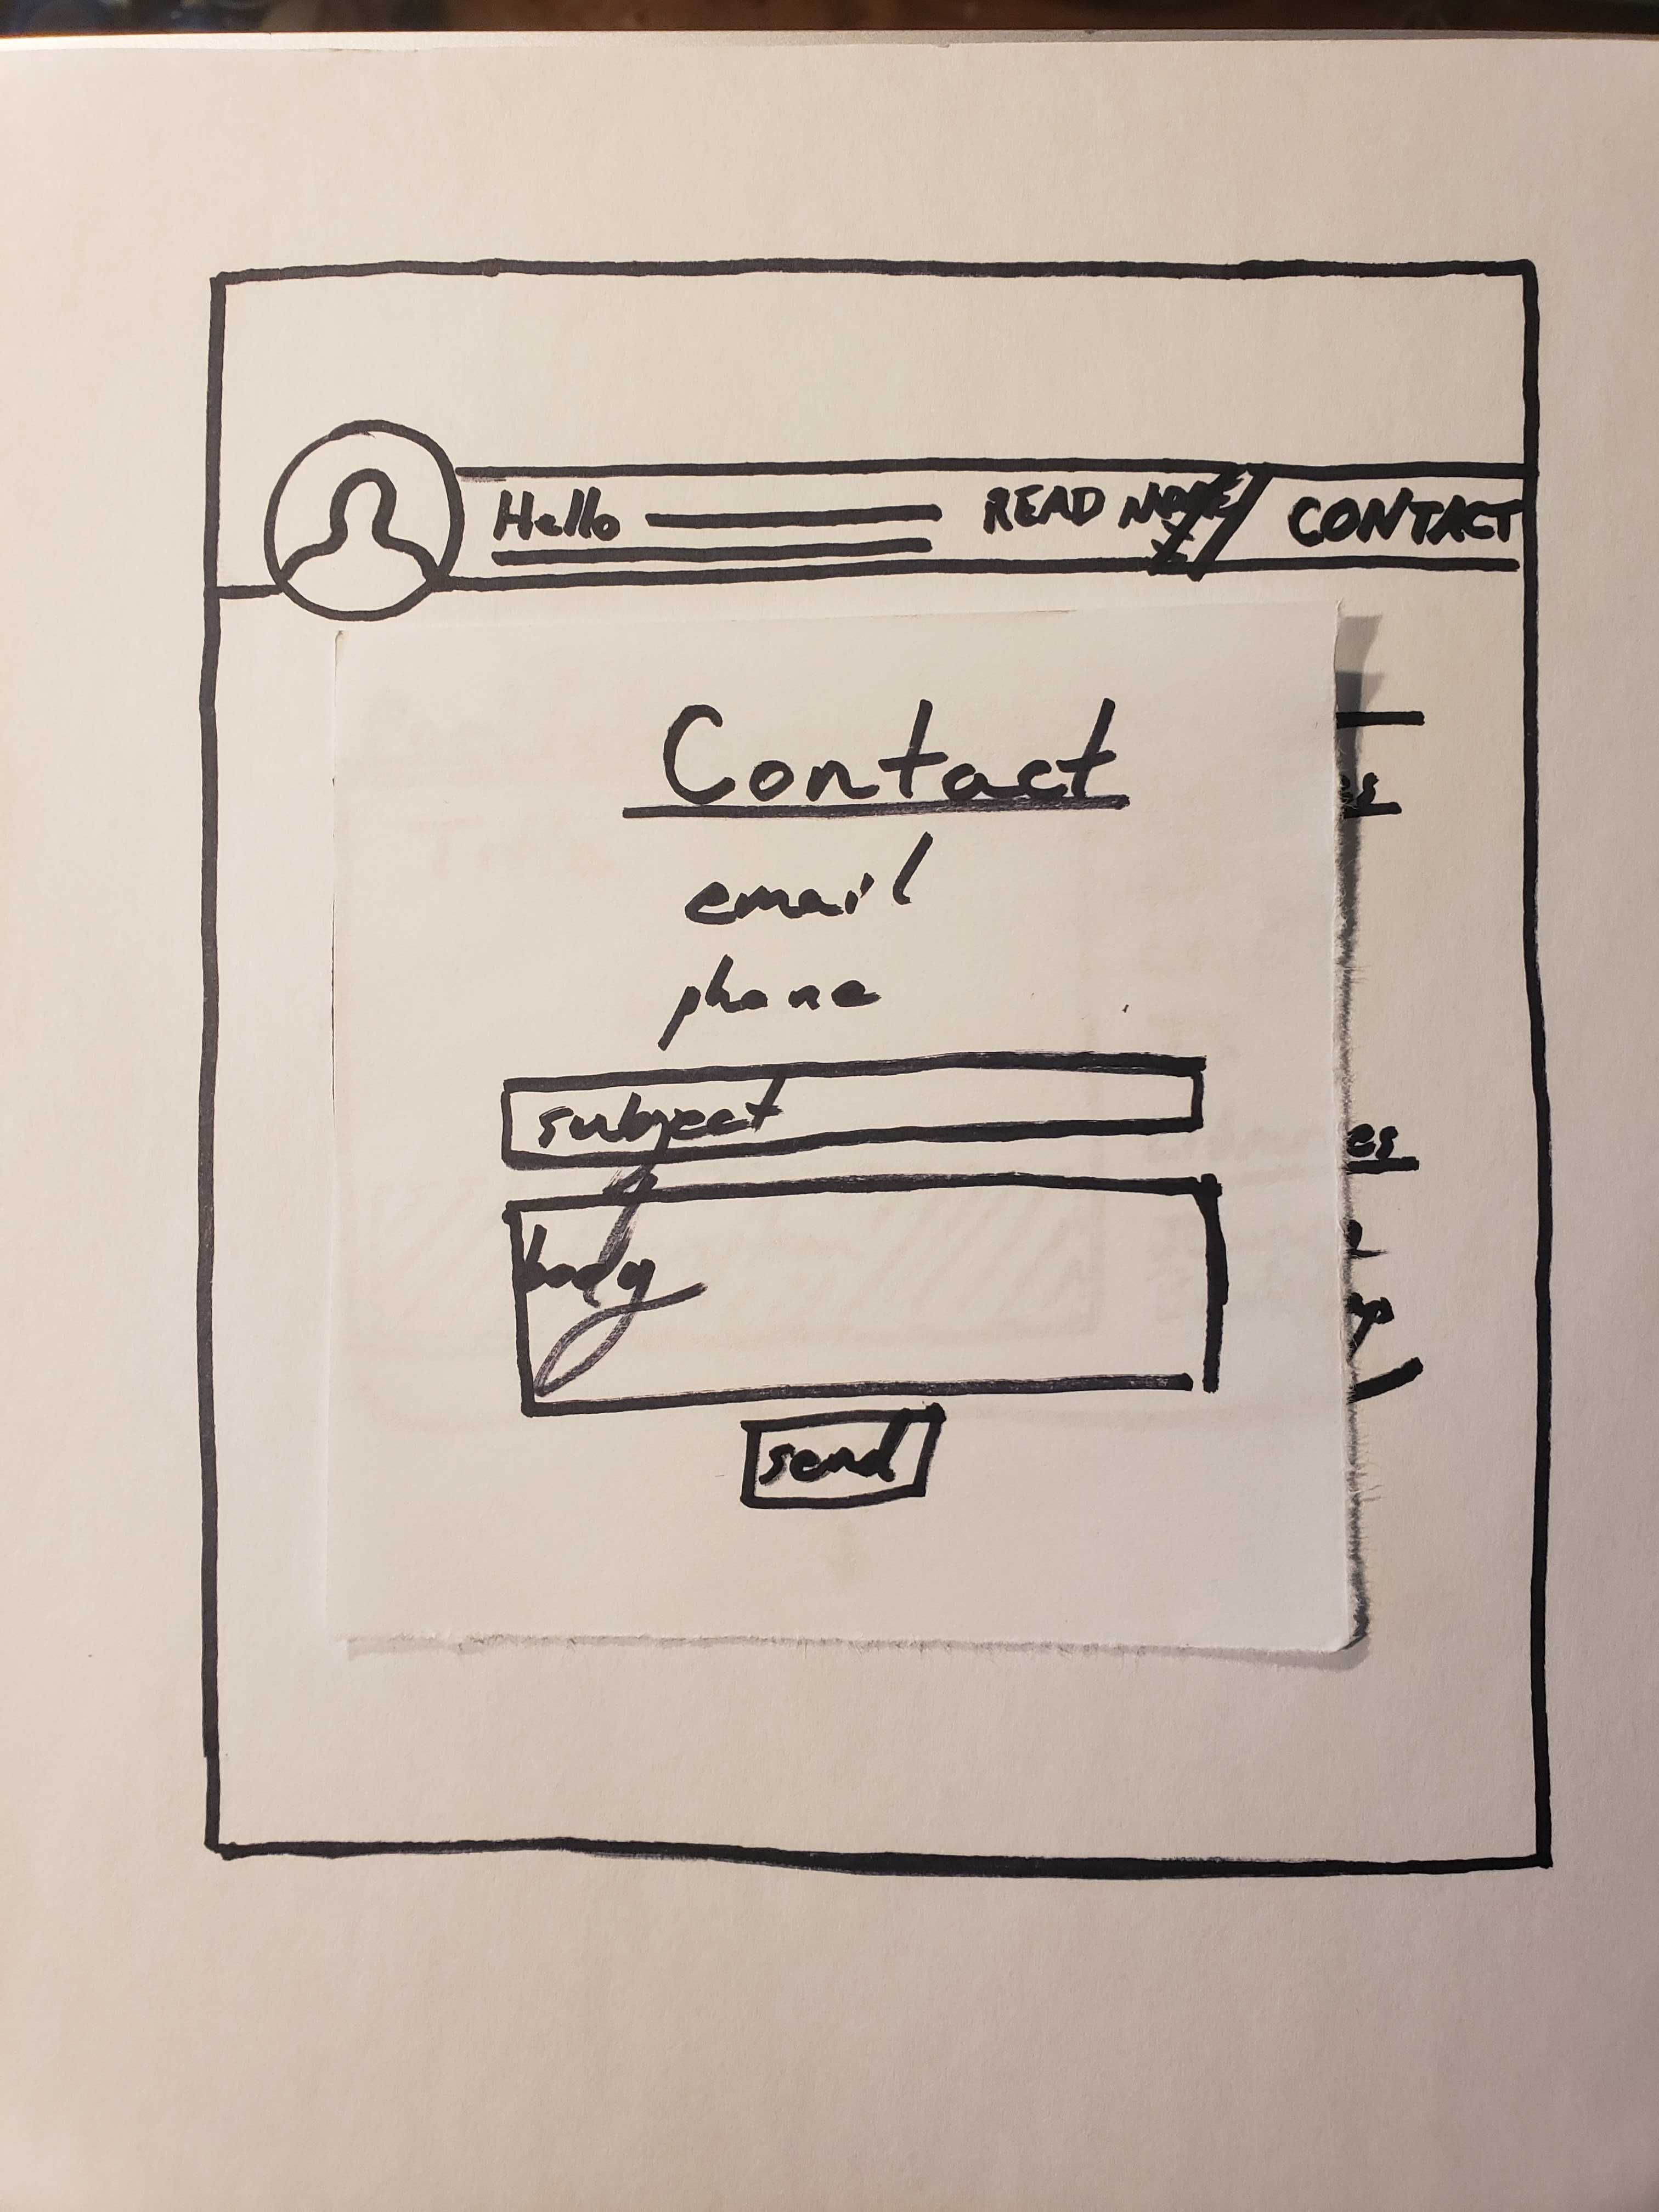 Hello READ MORE CONTACT
Contact
email
phone
subject
body
send